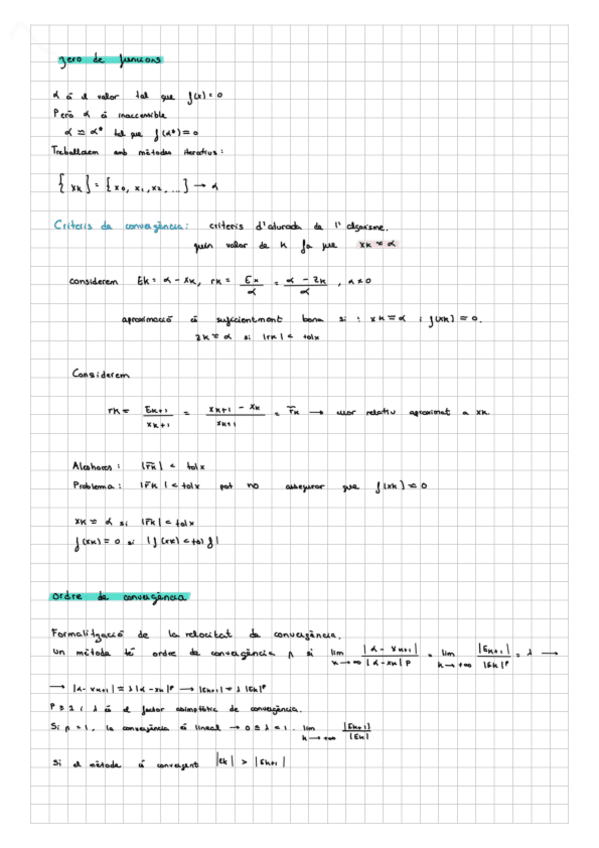 zero de funcions
α é el valor tal que f(x) = 0
Però α é inaccessible
α ≃ α* tal que f(α*) ≃ 0
Treballarem amb mètodes iteratius:
{xk} = {x0, x1, x2, ...} → α
Criteris de convergència: criteris d'aturada de l'algorisme.
quin valor de k fa que xk ≈ α
considerem Ek = α - xk, rk = Ek/α = α - xk/α, α ≠ 0
aproximació é suficientment bona si: xk ≃ α i f(xk) ≃ 0.
xk ≃ α si |rk| < tolx
Considerem
rk = Ek+1/xk+1 = xk+1 - xk/xk+1 = r̃k → error relatiu aproximat a xk.
Aleshores: |r̃k| < tolx
Problema: |r̃k| < tolx pot no assegurar que f(xk) ≃ 0
xk ≃ α si |r̃k| < tolx
f(xk) ≃ 0 si |f(xk) < tol f|
ordre de convergència
Formalització de la velocitat de convergència.
Un mètode té ordre de convergència p si lim k→∞ |α - xk+1|/|α - xk|p = lim k→+∞ |Ek+1|/|Ek|p = λ →
→ |α - xk+1| ≃ λ|α - xk|p → |Ek+1| ≃ λ|Ek|p
P ≥ 1 i λ é el factor asimptòtic de convergència.
Si p = 1, la convergència é lineal → 0 ≤ λ < 1. lim k→+∞ |Ek+1|/|Ek|
Si el mètode é convergent |Ek| > |Ek+1|